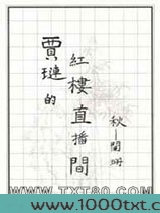 賈璉的
紅樓直播間
秋一聞時
WWW.TXT80.COM
www.1000txt.c